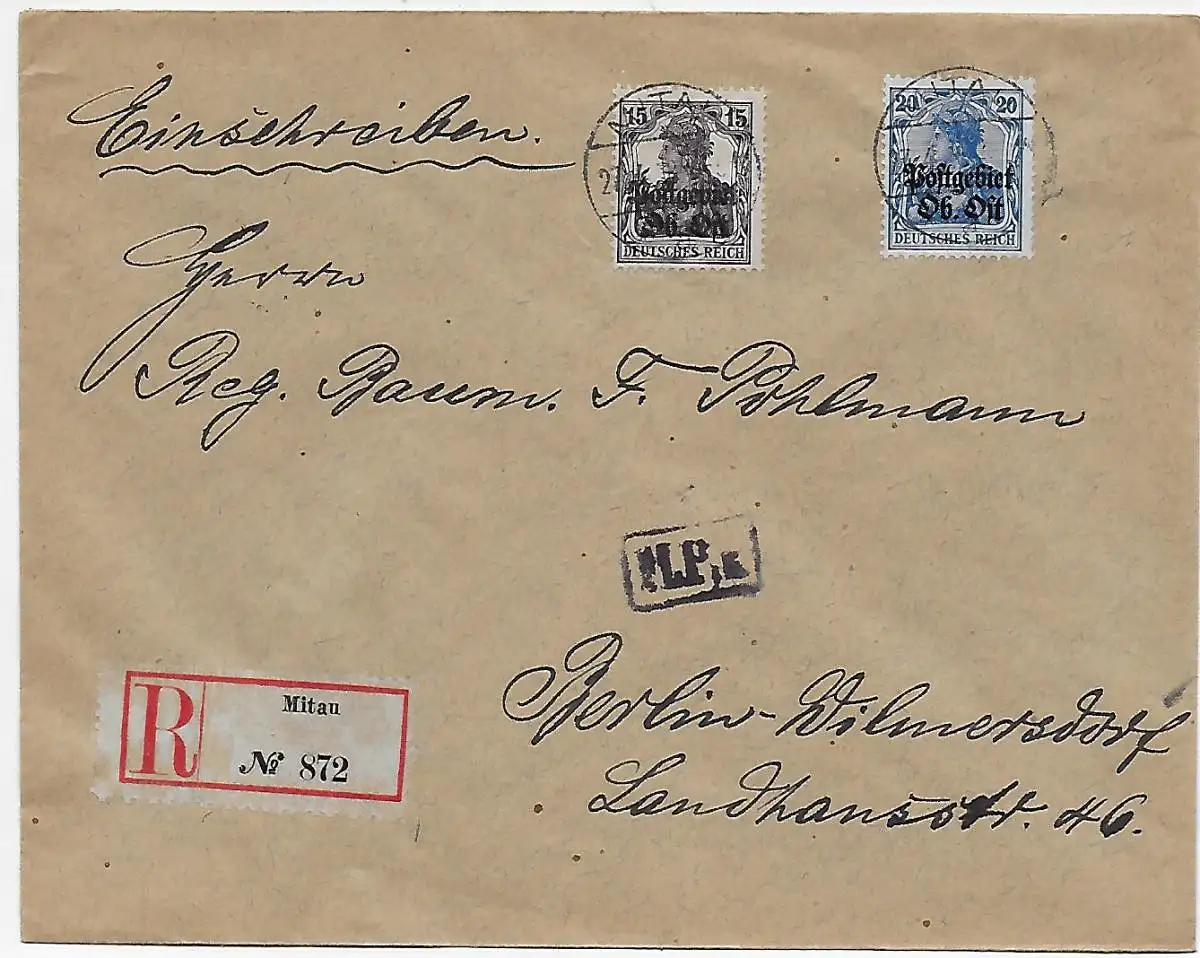 Einschreiben.
15 15
Postgebiet
Ob. Ost
DEUTSCHES REICH
20 20
Postgebiet
Ob. Ost
DEUTSCHES REICH
Herrn
Reg. Baum. F. Pöhlmann
M.P.
R
Mitau
№ 872
Berlin-Wilmersdorf
Landhausstr. 46.